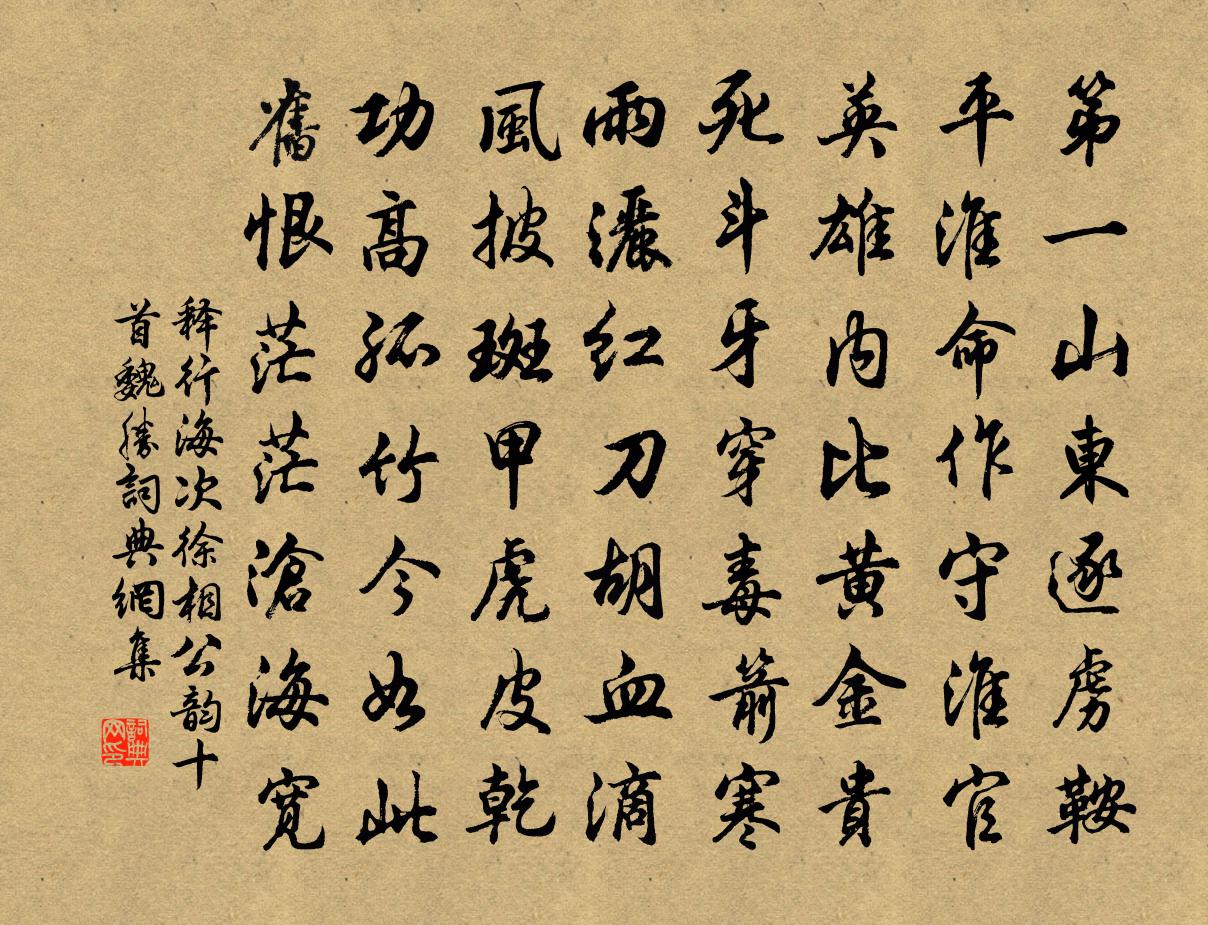 第一山東逐虜鞍
平淮命作守淮官
英雄内比黄金貴
死斗牙穿毒箭寒
雨灑红刀胡血滴
風披斑甲虎皮乾
功高孤竹今如此
舊恨茫茫滄海宽
释行海次徐相公韵十
首魏勝詞典網集
詞典
网印